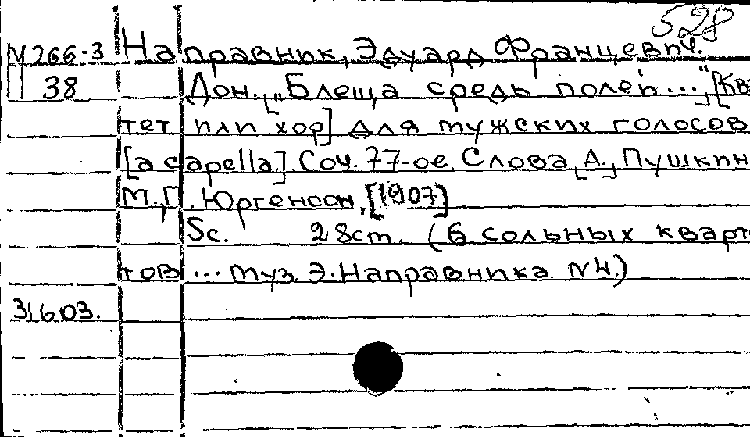 528
М 266-3 Направник, Эдуард Францевич.
П 38 Дон. ["Блеща средь полей ..."] [Кв
тет или хор] для мужских голосов
[a capella]. Соч. 77-ое. Слова [А.] Пушкин
М., П. Юргенсон, [1907]
Sc. 28 ст. (6 сольных кварт
тов ... муз. Э. Направника №4.)
31603.